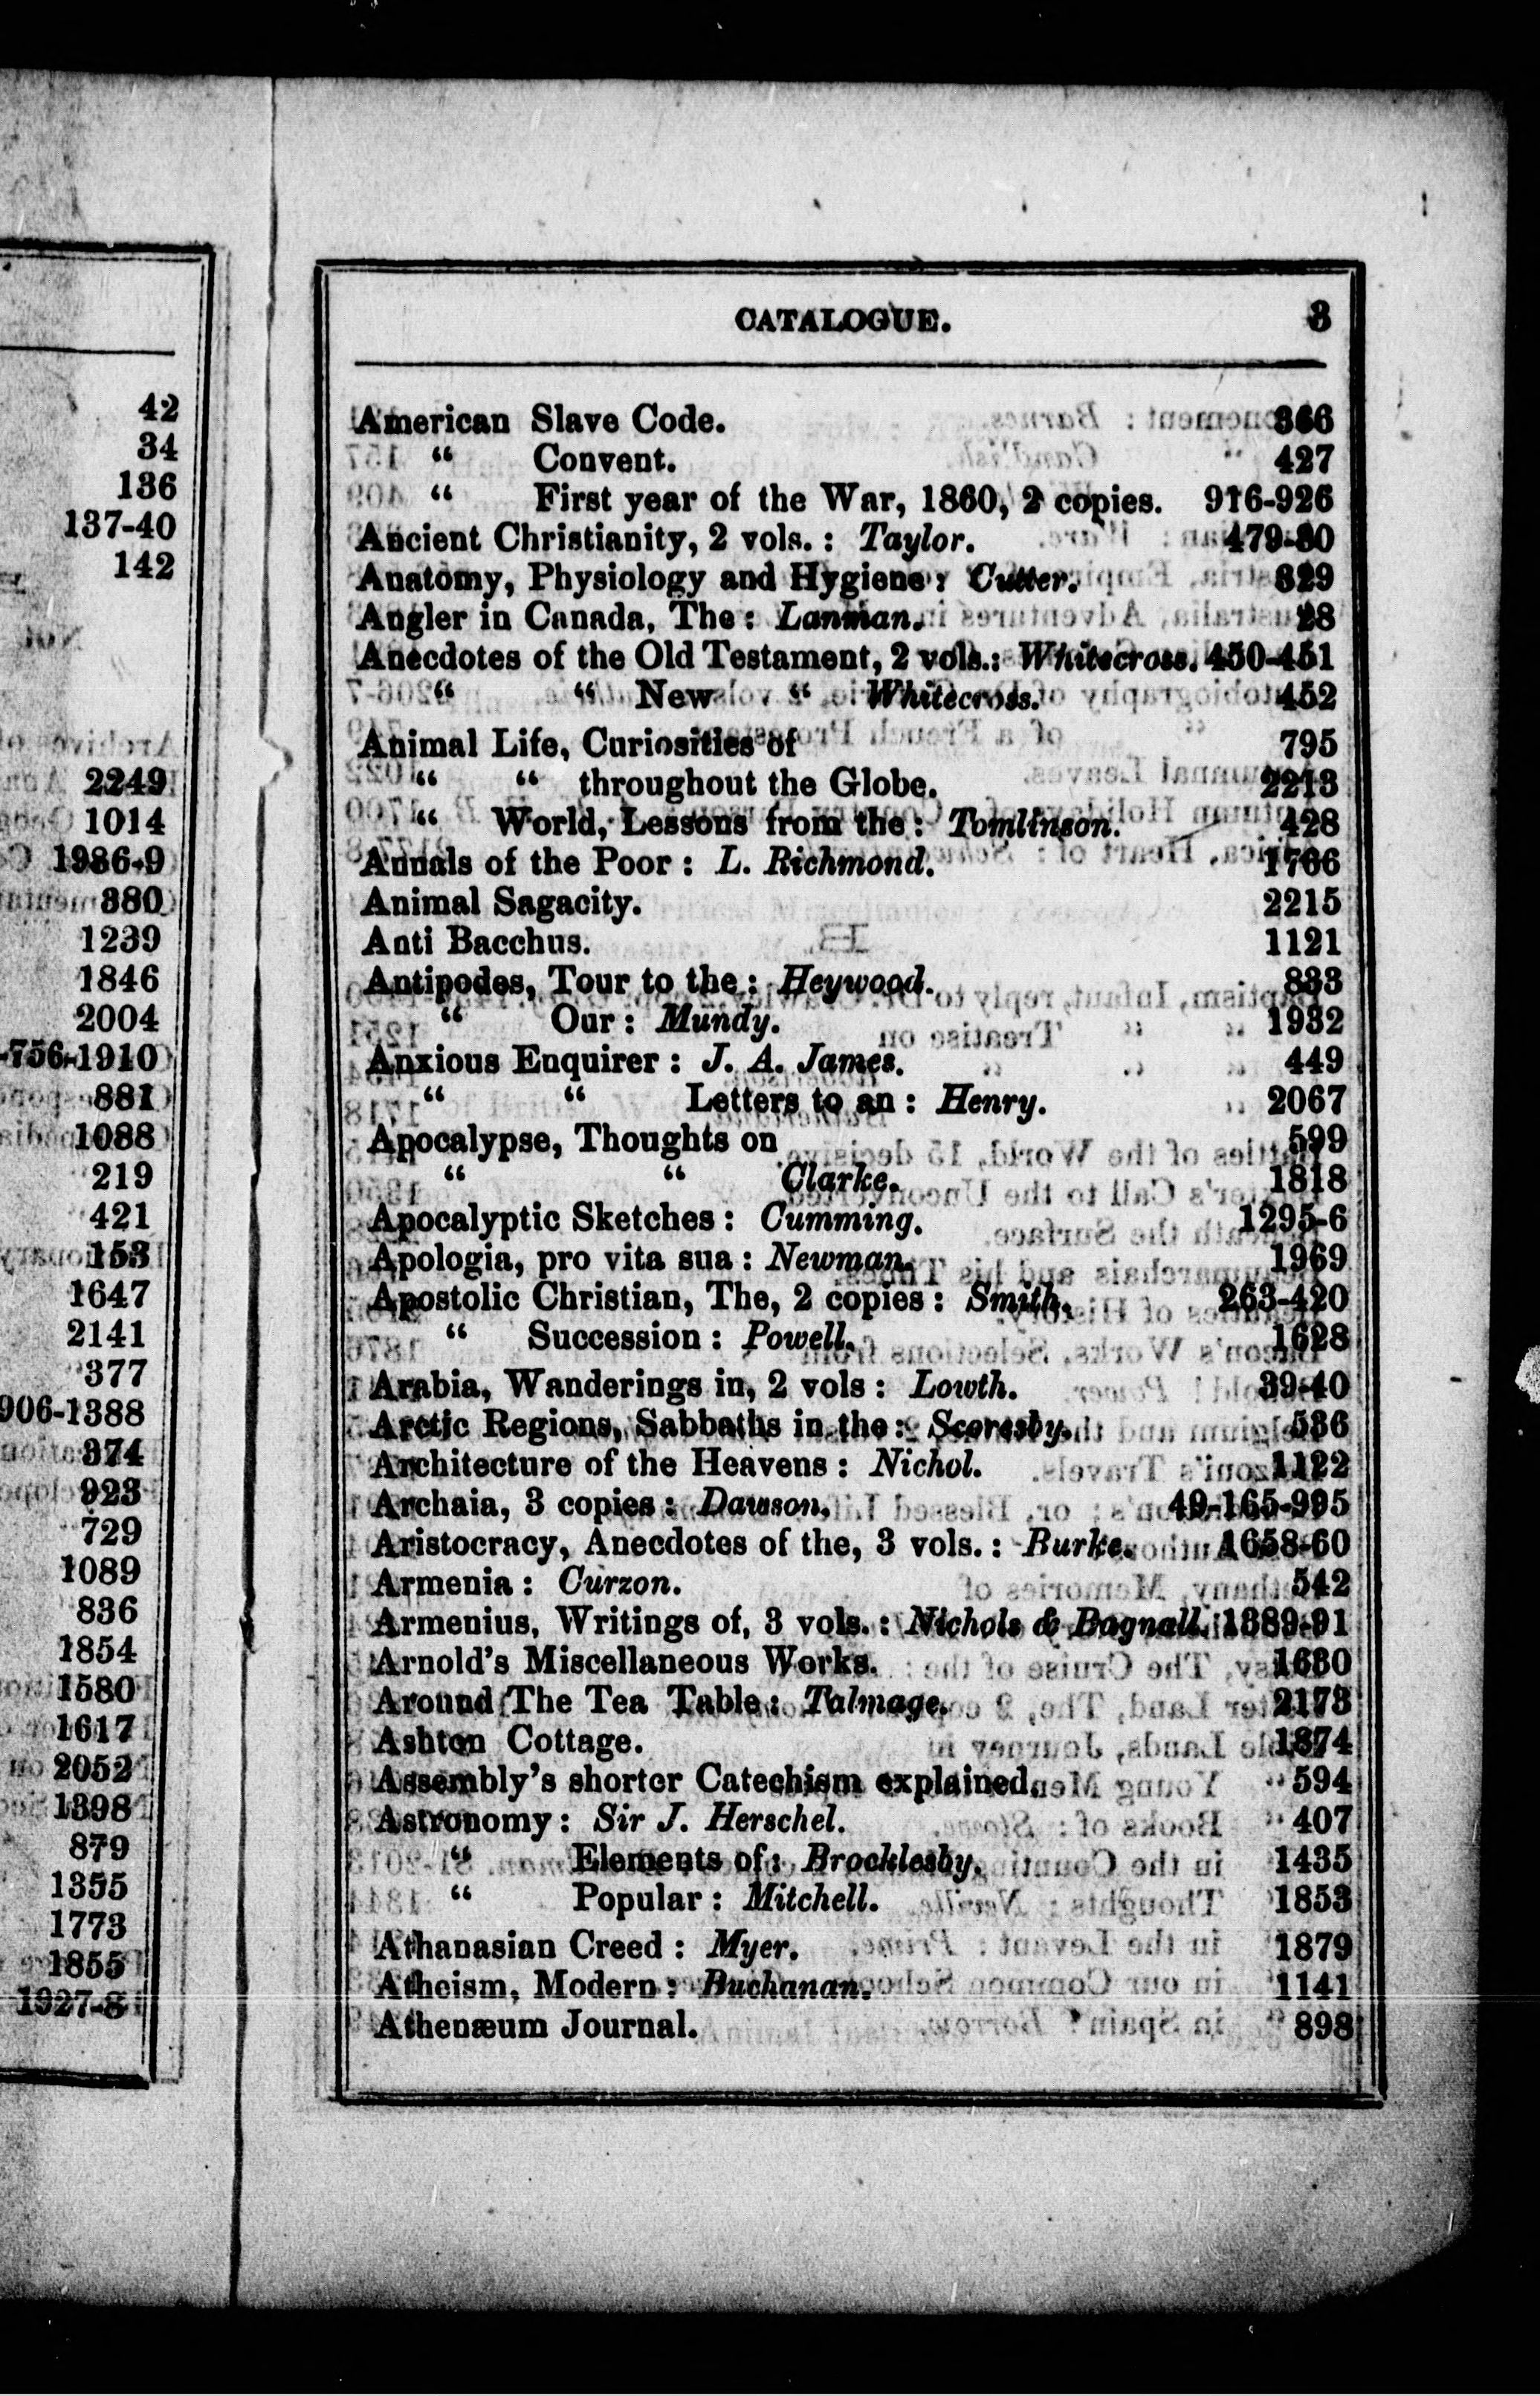 42
34
136
137-40
142
2249
1014
1986-9
380
1239
1846
2004
-756-1910
881
1088
219
421
153
1647
2141
377
906-1388
374
923
729
1089
836
1854
1580
1617
2052
1398
879
1355
1773
1855
1927-8
CATALOGUE. 3
American Slave Code. 366
“ Convent. 427
“ First year of the War, 1860, 2 copies. 916-926
Ancient Christianity, 2 vols. : Taylor. 479-80
Anatomy, Physiology and Hygiene : Cutter. 829
Angler in Canada, The : Lanman. 28
Anecdotes of the Old Testament, 2 vols.: Whitecross. 450-451
“ “ New “ Whitecross. 452
Animal Life, Curiosities of 795
“ “ throughout the Globe. 2213
“ World, Lessons from the : Tomlinson. 428
Annals of the Poor : L. Richmond. 1766
Animal Sagacity. 2215
Anti Bacchus. 1121
Antipodes, Tour to the : Heywood. 833
“ Our : Mundy. 1932
Anxious Enquirer : J. A. James. 449
“ “ Letters to an : Henry. 2067
Apocalypse, Thoughts on 599
“ “ Clarke. 1818
Apocalyptic Sketches : Cumming. 1295-6
Apologia, pro vita sua : Newman. 1969
Apostolic Christian, The, 2 copies : Smith. 263-420
“ Succession : Powell. 1628
Arabia, Wanderings in, 2 vols : Lowth. 39-40
Arctic Regions, Sabbaths in the : Scoresby. 536
Architecture of the Heavens : Nichol. 1122
Archaia, 3 copies : Dawson. 49-165-995
Aristocracy, Anecdotes of the, 3 vols. : Burke. 1658-60
Armenia : Curzon. 542
Armenius, Writings of, 3 vols. : Nichols & Bagnall. 1389-91
Arnold's Miscellaneous Works. 1630
Around The Tea Table : Talmage. 2173
Ashton Cottage. 1374
Assembly's shorter Catechism explained. 594
Astronomy : Sir J. Herschel. 407
“ Elements of : Brocklesby. 1435
“ Popular : Mitchell. 1853
Athanasian Creed : Myer. 1879
Atheism, Modern : Buchanan. 1141
Athenæum Journal. 898